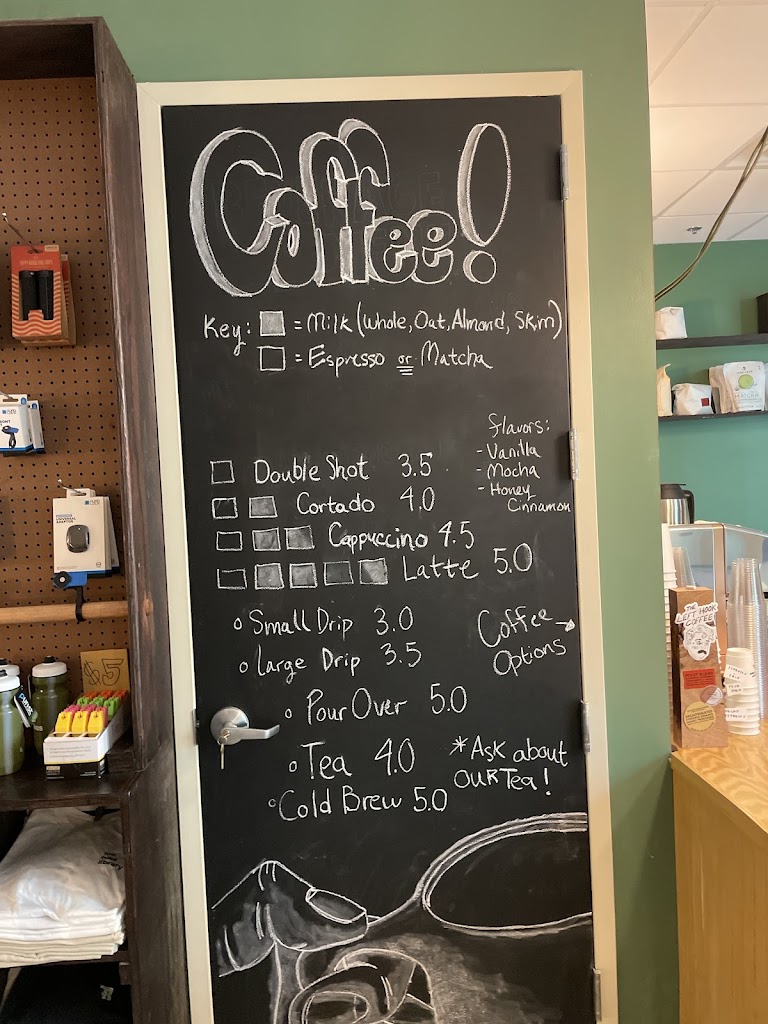 Coffee!
Key: = Milk (Whole, Oat, Almond, Skim)
= Espresso or Matcha
Flavors:
- Vanilla
- Mocha
- Honey
Cinnamon
Double Shot 3.5
Cortado 4.0
Cappuccino 4.5
Latte 5.0
Small Drip 3.0
Large Drip 3.5
Coffee →
Options
Pour Over 5.0
Tea 4.0
*Ask about
OUR Tea!
Cold Brew 5.0
$5
THE
LEFT HOOK
COFFEE
MATCHA
library